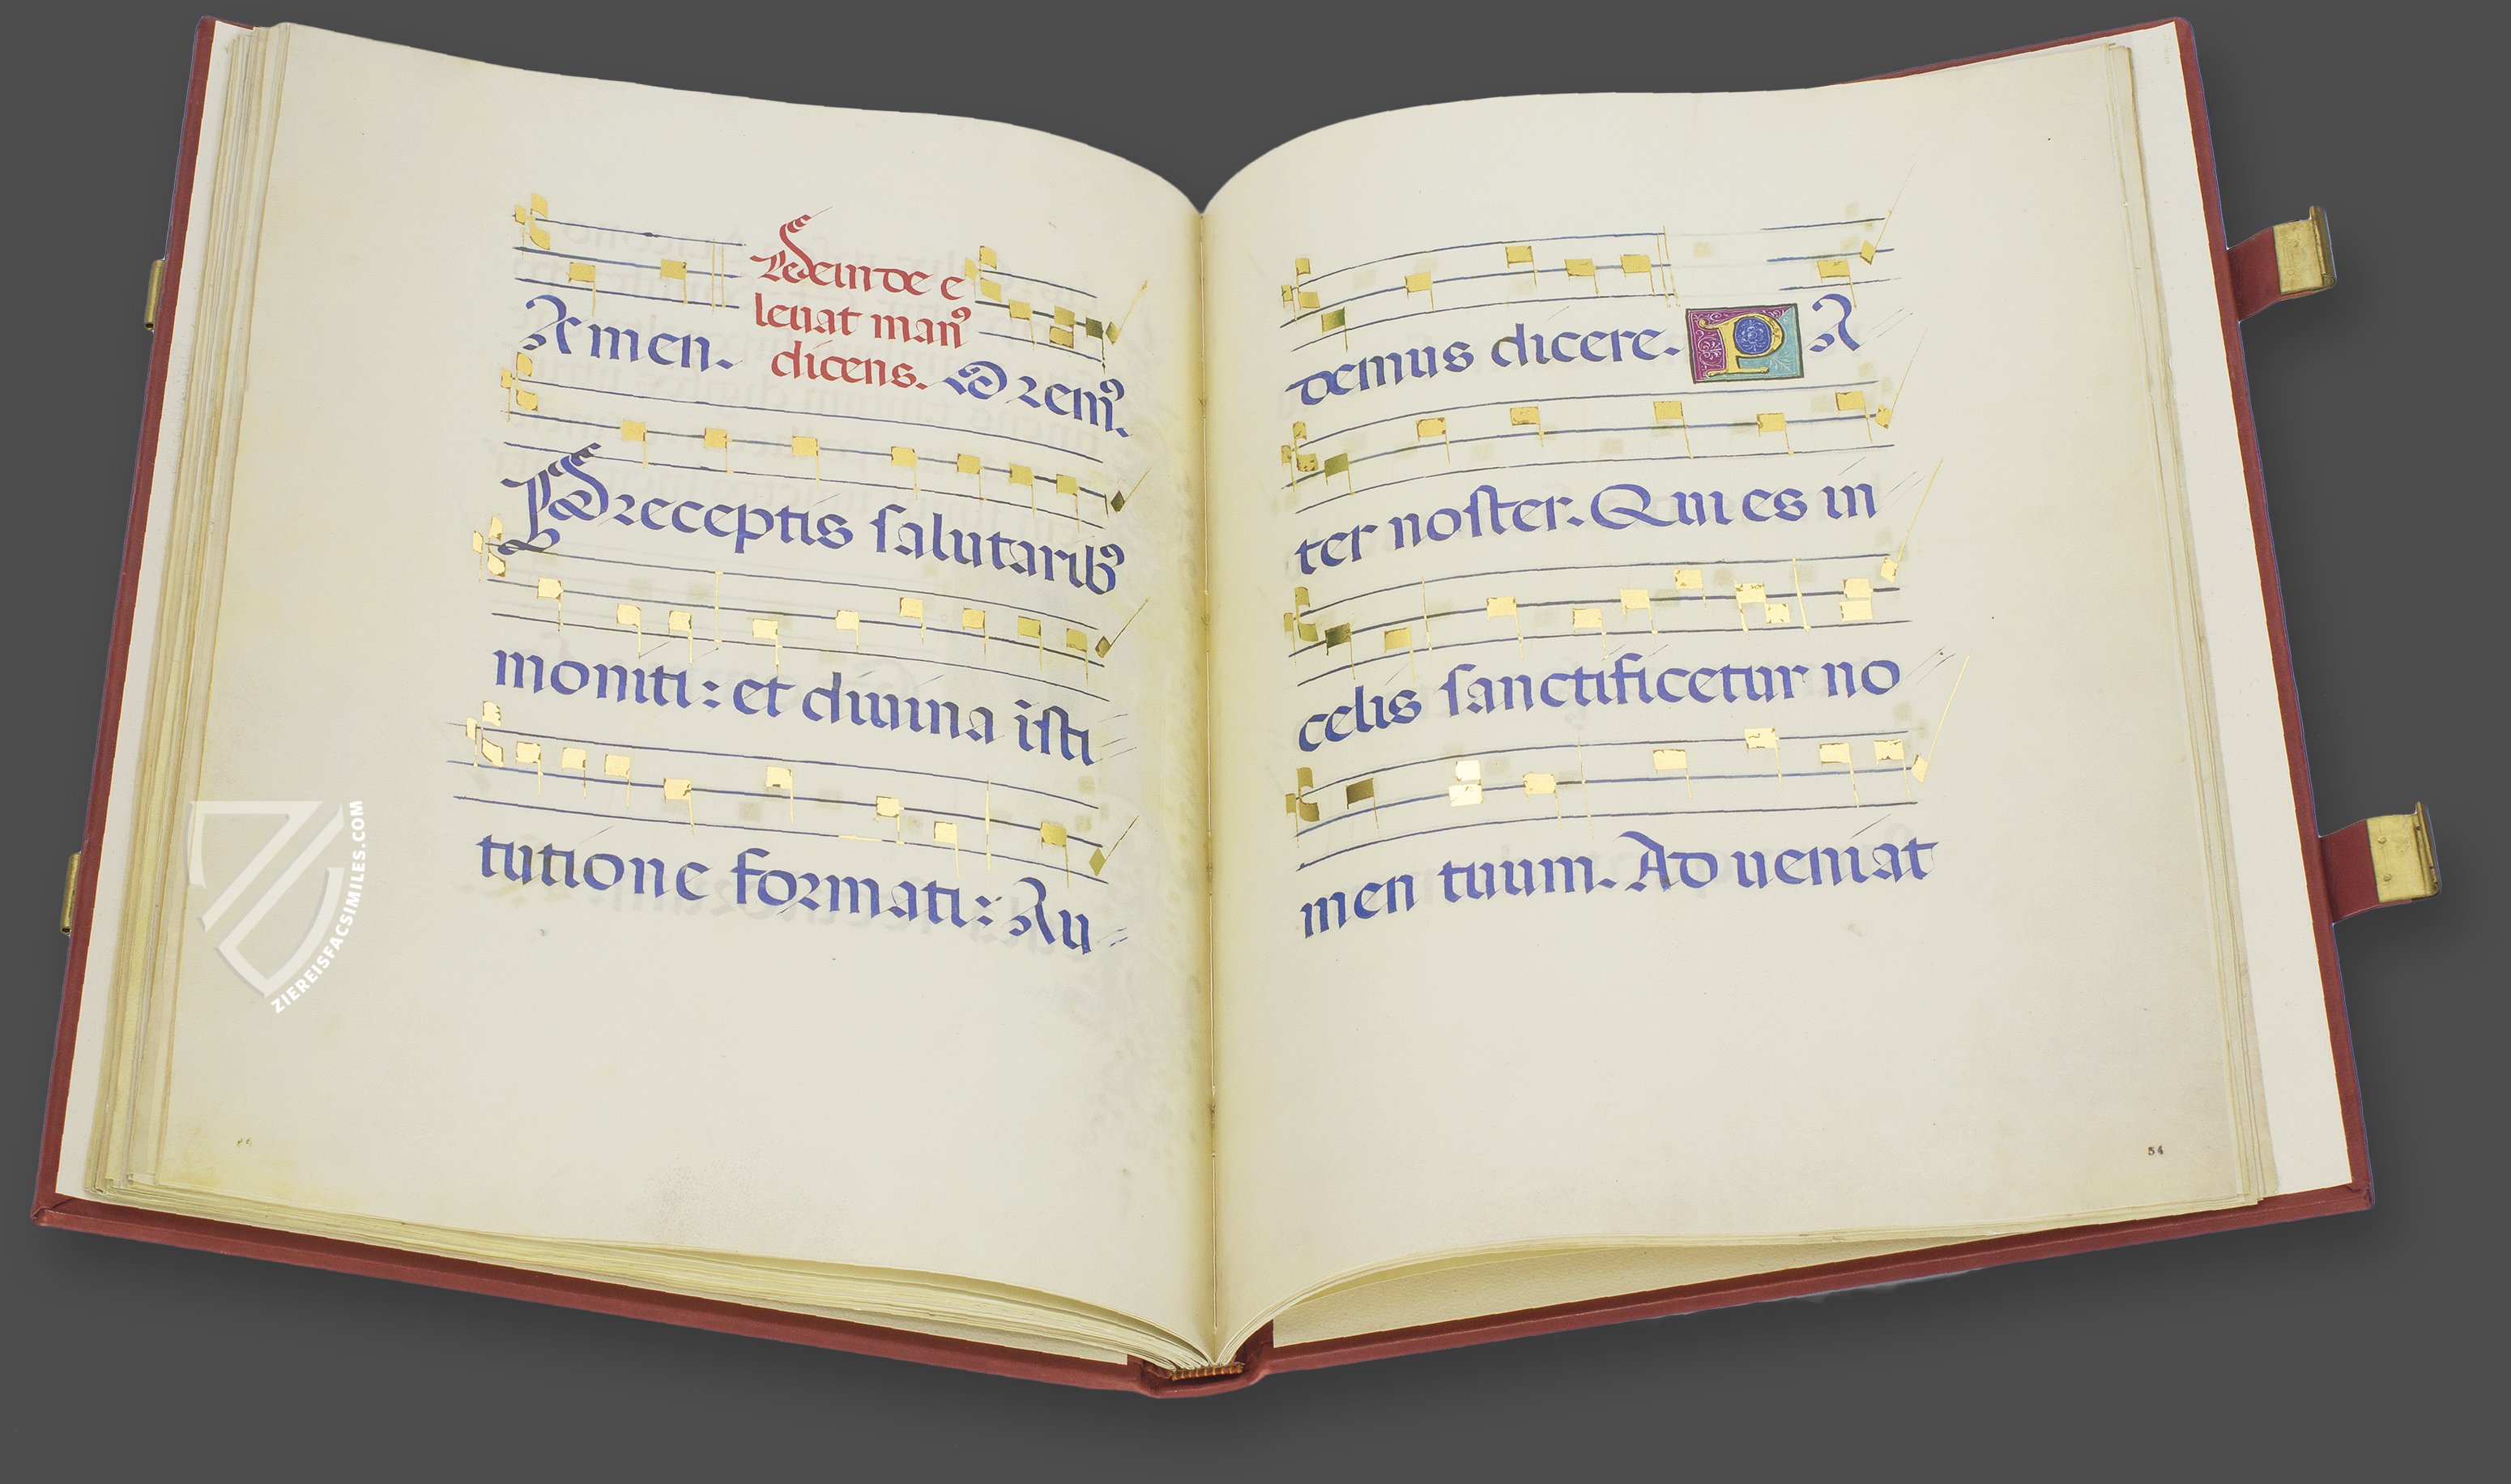 Deinde e
leuat man⁹
dicens.
Amen. Orem⁹.
Preceptis salutarib⁹
moniti: et diuina isti
tutione formati: Au
demus dicere. PA
ter noster. Qui es in
celis sanctificetur no
men tuum. Adueniat
54
ZIEREISFACSIMILES.COM